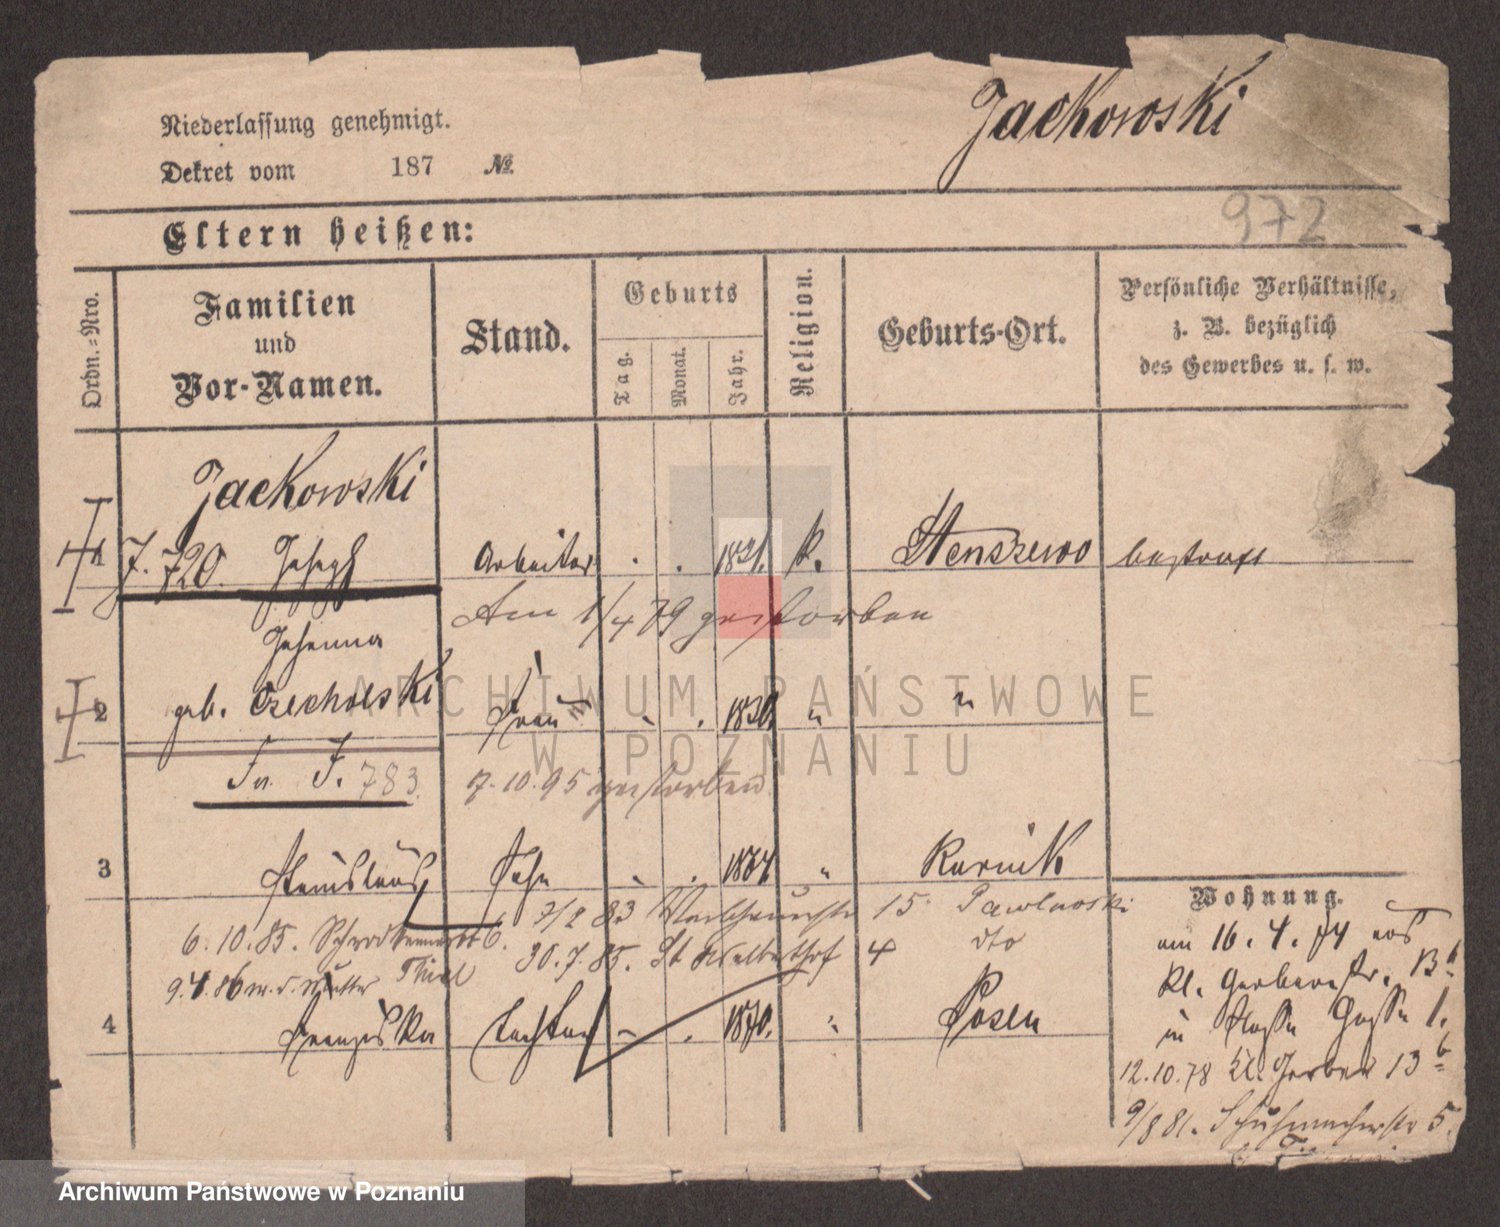 Jackowski
Niederlassung genehmigt.
Dekret vom 187 No.
972
Eltern heißen:
Ordn.-Nro.
Familien und Vor-Namen.
Stand.
Geburts
Tag.
Monat.
Jahr.
Religion.
Geburts-Ort.
Persönliche Verhältnisse, z. B. bezüglich des Gewerbes u. s. w.
Jackowski
1 J. 720. Joseph Arbeiter . . 1821. k. Stenszewo bestraft
Am 1/4 79 gestorben
Johanna
2 geb. Czecholski Frau . . 1830. " "
Fr. J. 783. 7.10.95 gestorben
3 Stanislaus Sohn . . 1864 " Kurnik
7/2 83 15 Pawlowski
6.10.85. Schrodkamarkt 6. 30.7.85. St Adalbertstr 4 dto
9.4.86 w. d. Mutter Thiel
4 Franziska Tochter - . 1870. " Posen
Wohnung.
am 16.4.74 aus
Kl. Gerberstr. 13b
in Gasse 1.
12.10.78 Kl. Gerber 13b
9/8 81. Schuhmacherstr 5.
ARCHIWUM PAŃSTWOWE
W POZNANIU
Archiwum Państwowe w Poznaniu